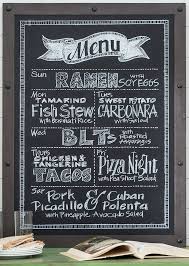 Menu
Sun RAMEN with SOY EGGS
Mon TAMARIND Fish Stew with Basmati Rice
Tues SWEET POTATO CARBONARA
Wed BLTs with Roasted Asparagus
Thurs CHICKEN & TANGERINE TACOS
Fri Pizza Night with Pea Shoot Salad
Sat Pork & Cuban
Picadillo & Polenta
with Pineapple Avocado Salad